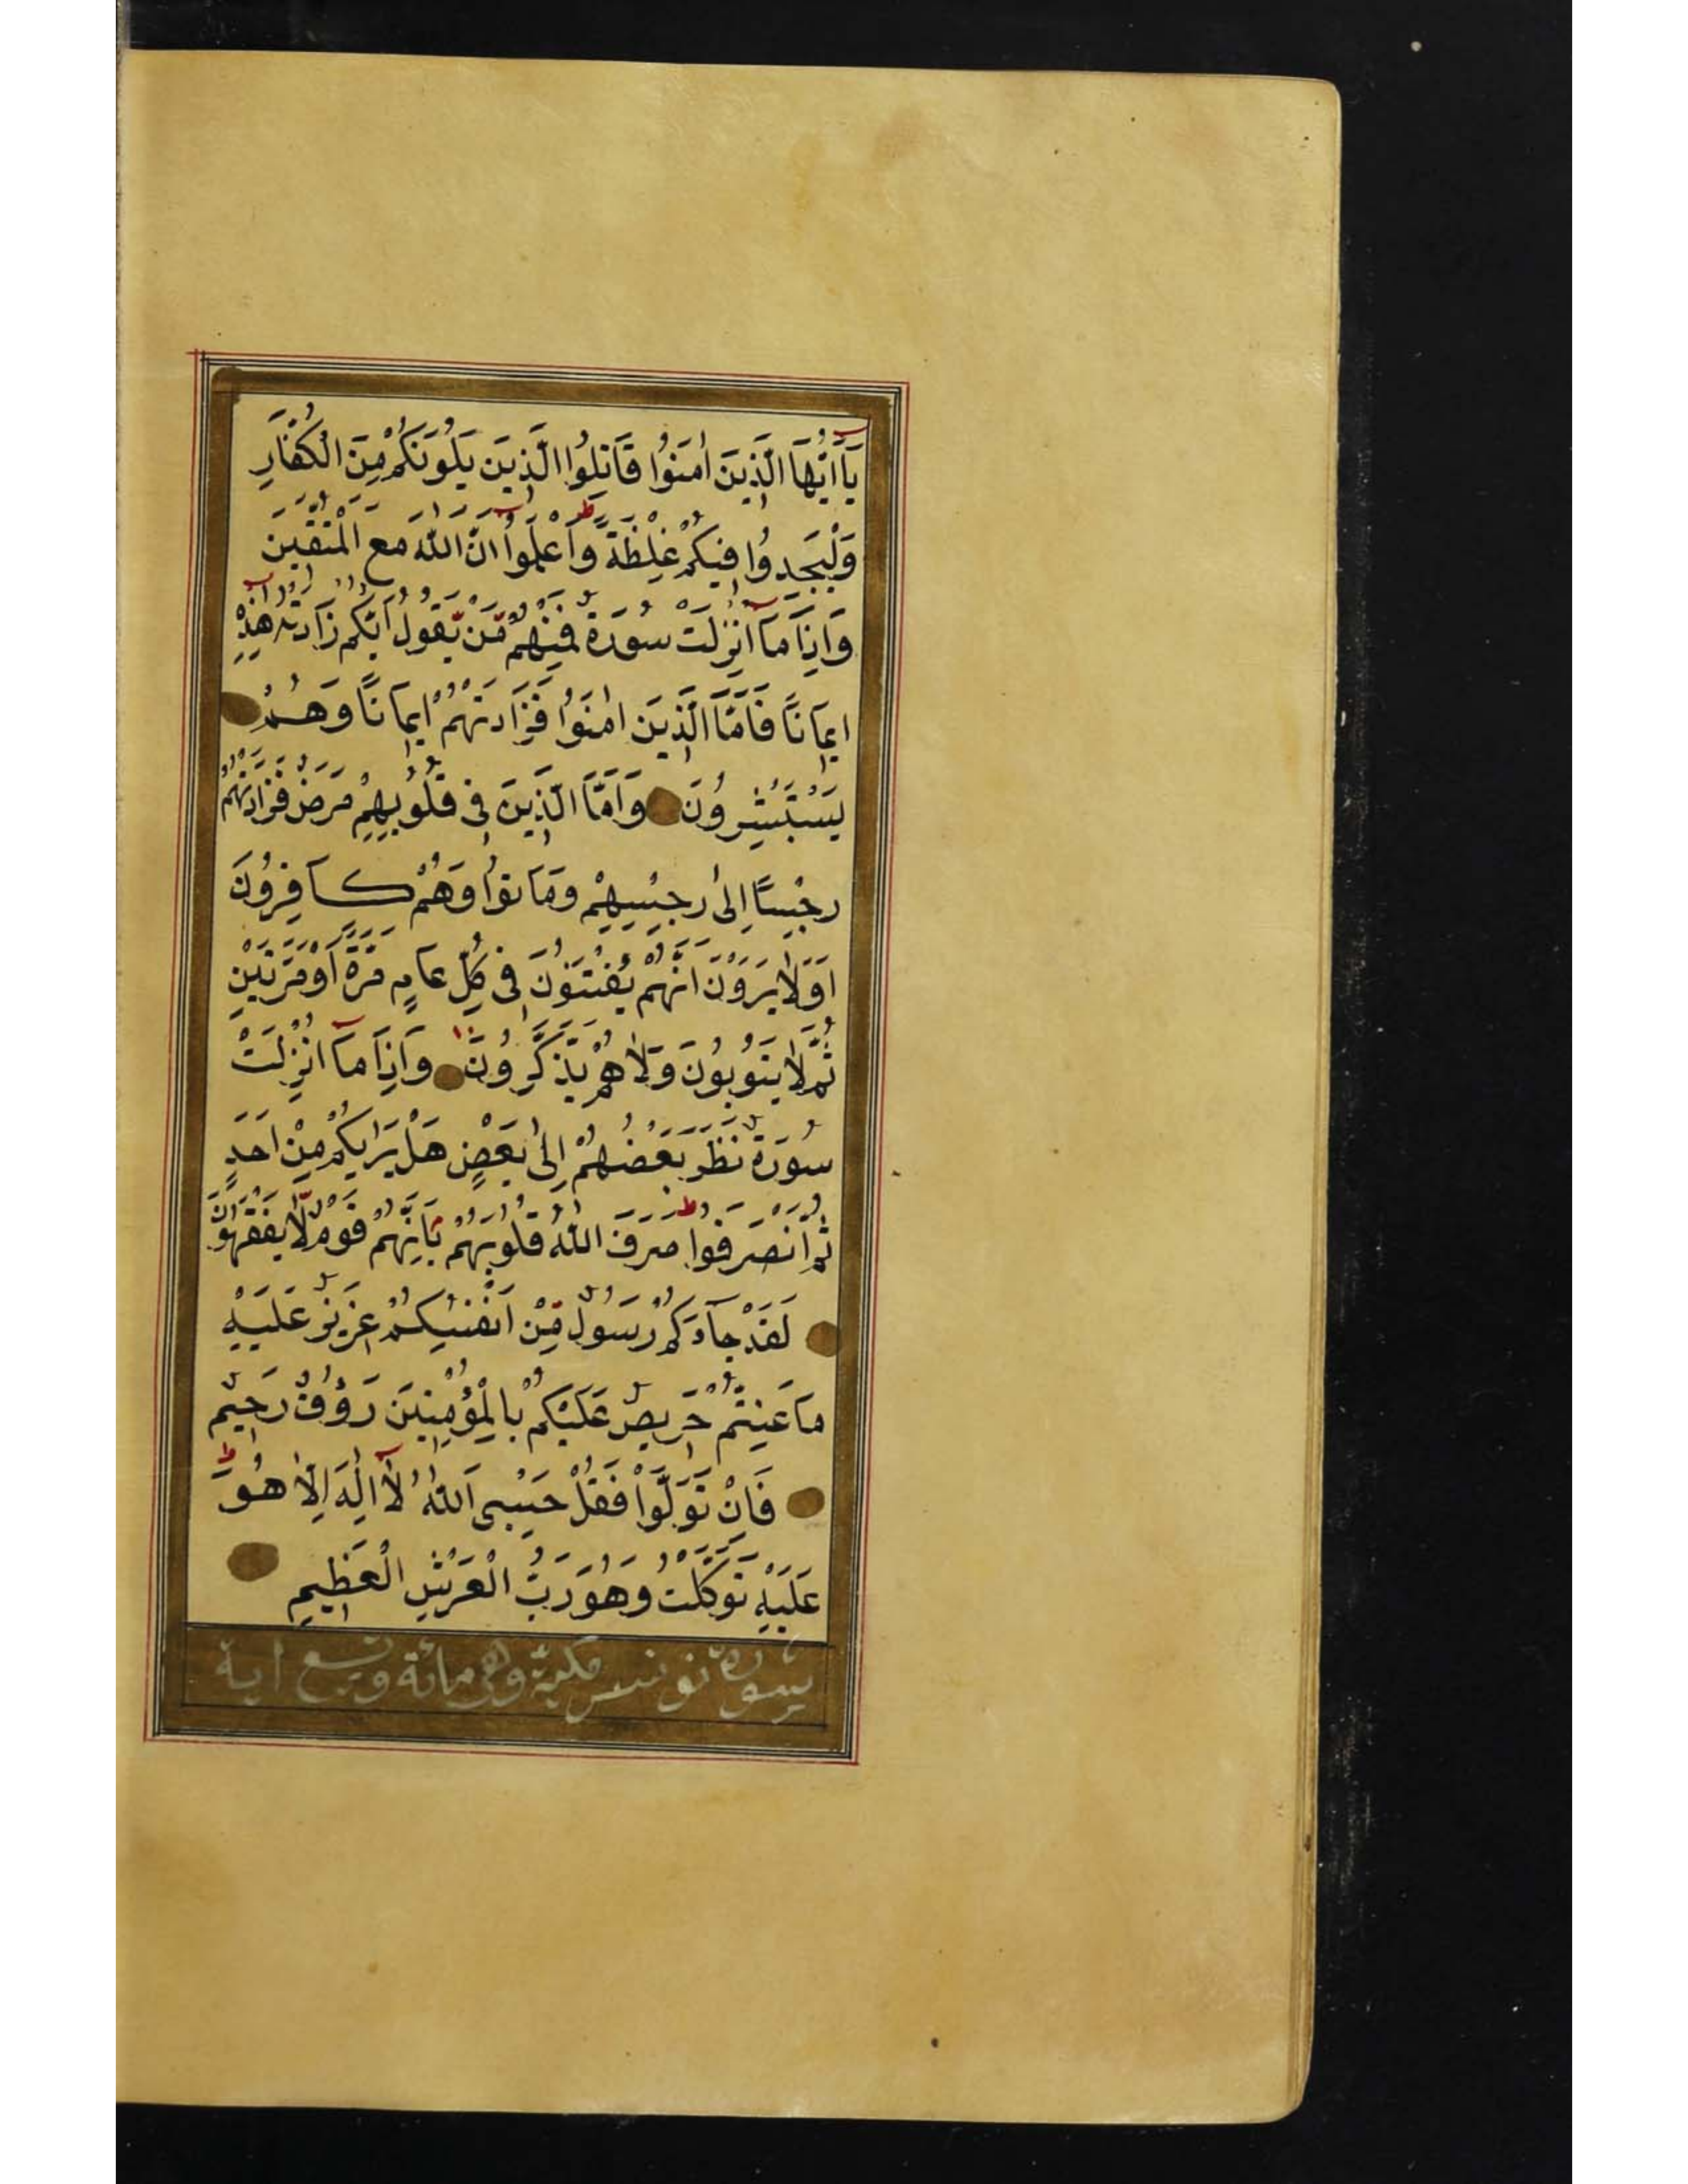 يَآ اَيُّهَا الَّذِينَ اٰمَنُوا قَاتِلُوا الَّذِينَ يَلُونَكُمْ مِنَ الْكُفَّارِ
وَلْيَجِدُوا فِيكُمْ غِلْظَةً وَاعْلَمُوا اَنَّ اللّٰهَ مَعَ الْمُتَّقِينَ
وَاِذَا مَآ اُنْزِلَتْ سُورَةٌ فَمِنْهُمْ مَّنْ يَّقُولُ اَيُّكُمْ زَادَتْهُ هٰذِهِ
اِيمَانًا فَاَمَّا الَّذِينَ اٰمَنُوا فَزَادَتْهُمْ اِيمَانًا وَهُمْ
يَسْتَبْشِرُونَ وَاَمَّا الَّذِينَ فِى قُلُوبِهِمْ مَرَضٌ فَزَادَتْهُمْ
رِجْسًا اِلٰى رِجْسِهِمْ وَمَاتُوا وَهُمْ كَافِرُونَ
اَوَلَا يَرَوْنَ اَنَّهُمْ يُفْتَنُونَ فِى كُلِّ عَامٍ مَرَّةً اَوْ مَرَّتَيْنِ
ثُمَّ لَا يَتُوبُونَ وَلَا هُمْ يَذَّكَّرُونَ وَاِذَا مَآ اُنْزِلَتْ
سُورَةٌ نَظَرَ بَعْضُهُمْ اِلٰى بَعْضٍ هَلْ يَرٰيكُمْ مِنْ اَحَدٍ
ثُمَّ انْصَرَفُوا صَرَفَ اللّٰهُ قُلُوبَهُمْ بِاَنَّهُمْ قَوْمٌ لَّا يَفْقَهُونَ
لَقَدْ جَآءَكُمْ رَسُولٌ مِّنْ اَنْفُسِكُمْ عَزِيزٌ عَلَيْهِ
مَا عَنِتُّمْ حَرِيصٌ عَلَيْكُمْ بِالْمُؤْمِنِينَ رَؤُفٌ رَحِيمٌ
فَاِنْ تَوَلَّوْا فَقُلْ حَسْبِىَ اللّٰهُ لَآ اِلٰهَ اِلَّا هُوَ
عَلَيْهِ تَوَكَّلْتُ وَهُوَ رَبُّ الْعَرْشِ الْعَظِيمِ
سورة يونس مكية وهى مائة وتسع اية